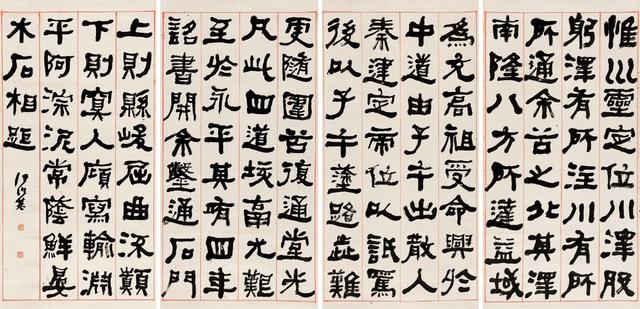 惟巛靈定位川澤股
躬澤有所注川有所
所通余谷之川其澤
南隆八方所達益域
為充高祖受命興於
中道由子午出散入
秦建定帝位以詆焉
後以子午塗路歮難
更隨圍谷復通堂光
凡此四道垓鬲尤艱
至於永平其有四年
詔書開余鑿通石門
上則縣峻屈曲流顛
下則冥入傾寫輸淵
平阿淙泥常蔭鮮晏
木石相距